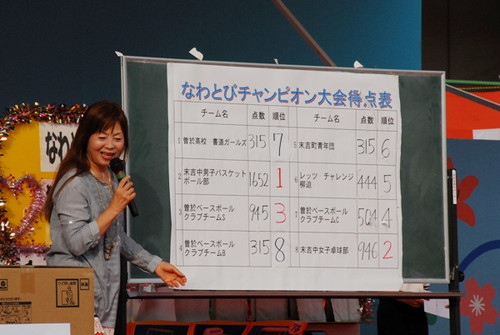 なわとびチャンピオン大会得点表
チーム名 点数 順位 チーム名 点数 順位
1 曽於高校 書道ガールズ 315 7
2 末吉中男子バスケット
ボール部 1652 1
3 曽於ベースボール
クラブチームS 945 3
4 曽於ベースボール
クラブチームB 315 8
5 末吉町青年団 315 6
6 レッツ チャレンジ
柳迫 444 5
7 曽於ベースボール
クラブチームC 504 4
8 末吉中女子卓球部 946 2
なわ